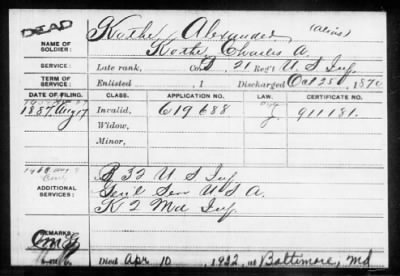 DEAD
Kothe, Alexander (alias)
NAME OF SOLDIER:
Kothe, Charles A.
SERVICE: Late rank, Co. G, 21 Reg't U S Inf.
TERM OF SERVICE: Enlisted , 1 Discharged Oct 25, 1870
DATE OF FILING. CLASS. APPLICATION NO. LAW. CERTIFICATE NO.
1887, Aug 17 Invalid, 619688 911181.
Widow,
Minor,
B 32 U S Inf
ADDITIONAL SERVICES: Genl Serv U S A.
K 2 Md Inf.
REMARKS:
Died Apr 10, 1932, at Baltimore, Md